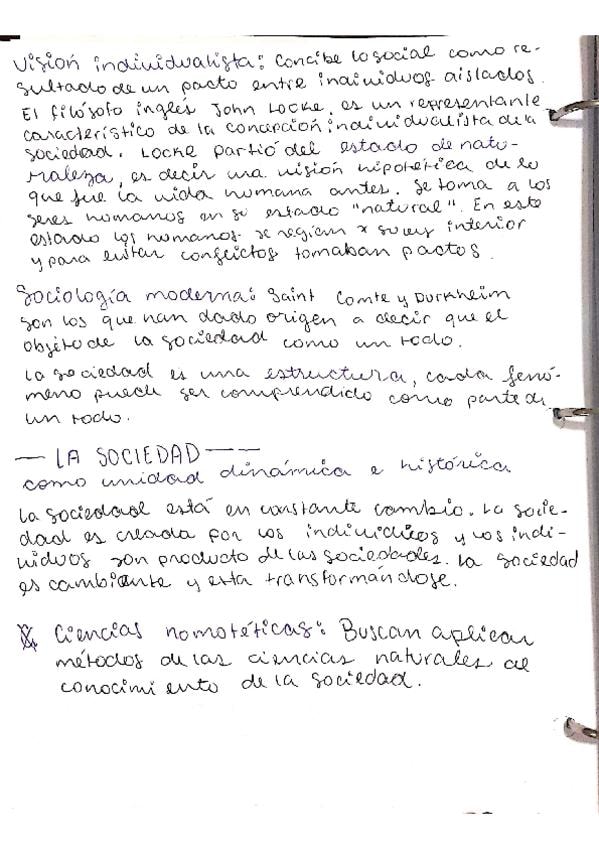 Visión individualista: Concibe lo social como re-
sultado de un pacto entre individuos aislados.
El filósofo inglés John Locke, es un representante
característico de la concepción individualista de la
sociedad. Locke partió del estado de natu-
raleza, es decir una visión hipotética de lo
que fue la vida humana antes. Se toma a los
seres humanos en su estado "natural". En este
estado los humanos se regían x su ley interior
y para evitar conflictos tomaban pactos.
Sociología moderna: Saint Comte y Durkheim
son los que han dado origen a decir que el
objeto de la sociedad como un todo.
La sociedad es una estructura, cada fenó-
meno puede ser comprendido como parte de
un todo.
— LA SOCIEDAD — —
como unidad dinámica e histórica
La sociedad está en constante cambio. La socie-
dad es creada por los individuos y los indi-
viduos son producto de las sociedades. La sociedad
es cambiante y esta transformándose.
Ciencias nomotéticas: Buscan aplicar
métodos de las ciencias naturales al
conocimiento de la sociedad.